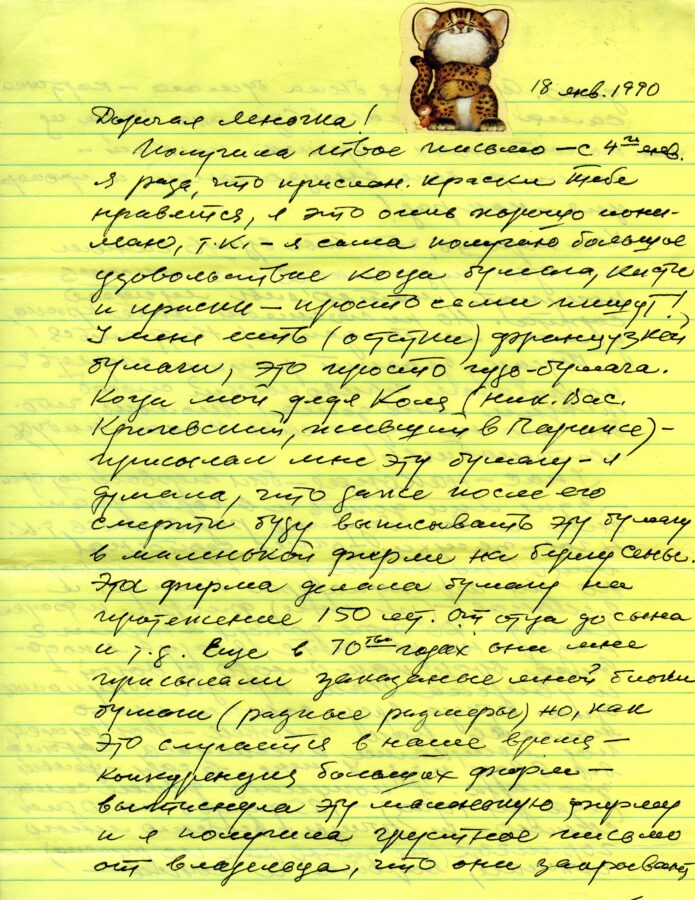 18 янв. 1990
Дорогая Леночка!
Получила твое письмо – с 4го янв.
я рада, что прислан. краски тебе
нравятся, я это очень хорошо пони-
маю, т.к. – я сама получаю большое
удовольствие когда бумага, кисти
и краски – просто сами пишут!
У меня есть (остатки) французской
бумаги, это просто чудо-бумага.
Когда мой дядя Коля (Ник. Вас.
Кричевский, живший в Париже) –
присылал мне эту бумагу – я
думала, что даже после его
смерти буду выписывать эту бумагу
в маленькой фирме на берегу Сены.
Эта фирма делала бумагу на
протяжение 150 лет. От отца до сына
и т.д. Еще в 70тых годах они мне
присылали заказаные мной блоки
бумаги (разные размеры) но, как
это случается в наше время –
конкуренция больших фирм –
вытиснула эту маленькую фирму
и я получила грустное письмо
от владельца, что они закрывают